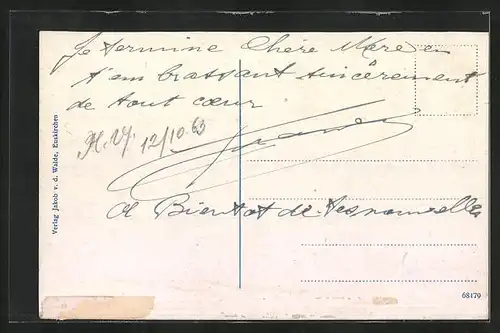 Je termine Chère Mère en
t'embrassant sincèrement
de tout cœur
12/10.63
A Bientot de tes nouvelles
Verlag Jakob v. d. Walde, Euskirchen
68479